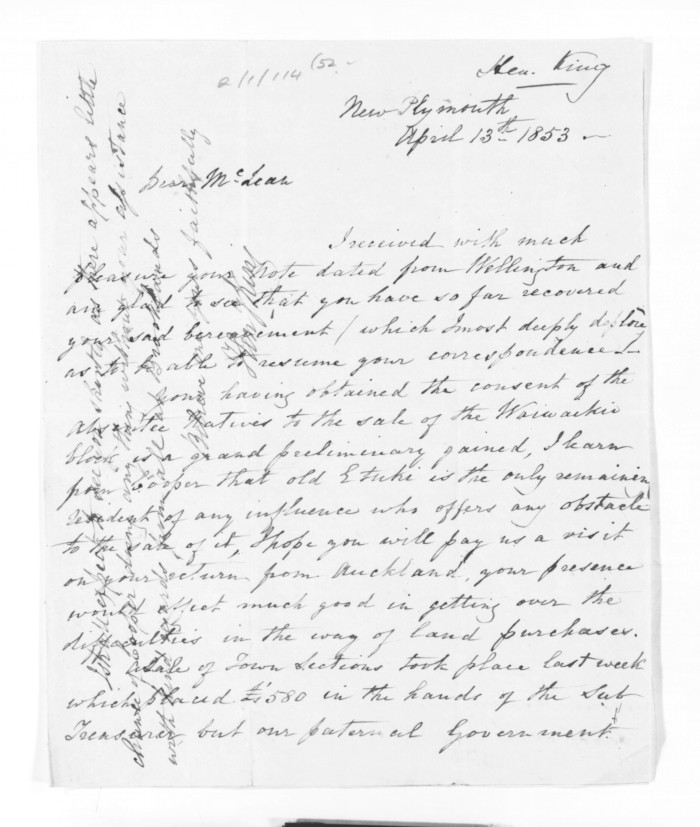 2/1/114 (52
Hen. King
New Plymouth
April 13th 1853
Dear McLean
I received with much
pleasure your Note dated from Wellington and
am glad to see that you have so far recovered
your sad bereavement (which I most deeply deplore)
as to be able to resume your correspondence
your having obtained the consent of the
absentee Natives to the sale of the Waiwakiu
block is a grand preliminary gained, I learn
from Cooper that old E tuki is the only remaining
resident of any influence who offers any obstacle
to the sale of it, I hope you will pay us a visit
on your return from Auckland, your presence
would effect much good in getting over the
difficulties in the way of land purchases.
Sale of Town Sections took place last week
which placed £1580 in the hands of the Sub
Treasurer but our paternal Government
shall expect to see you shortly as there appears little
chance of Cooper doing any thing without your assistance
with kind regards from all at Brooklands
yours faithfully
Hen King